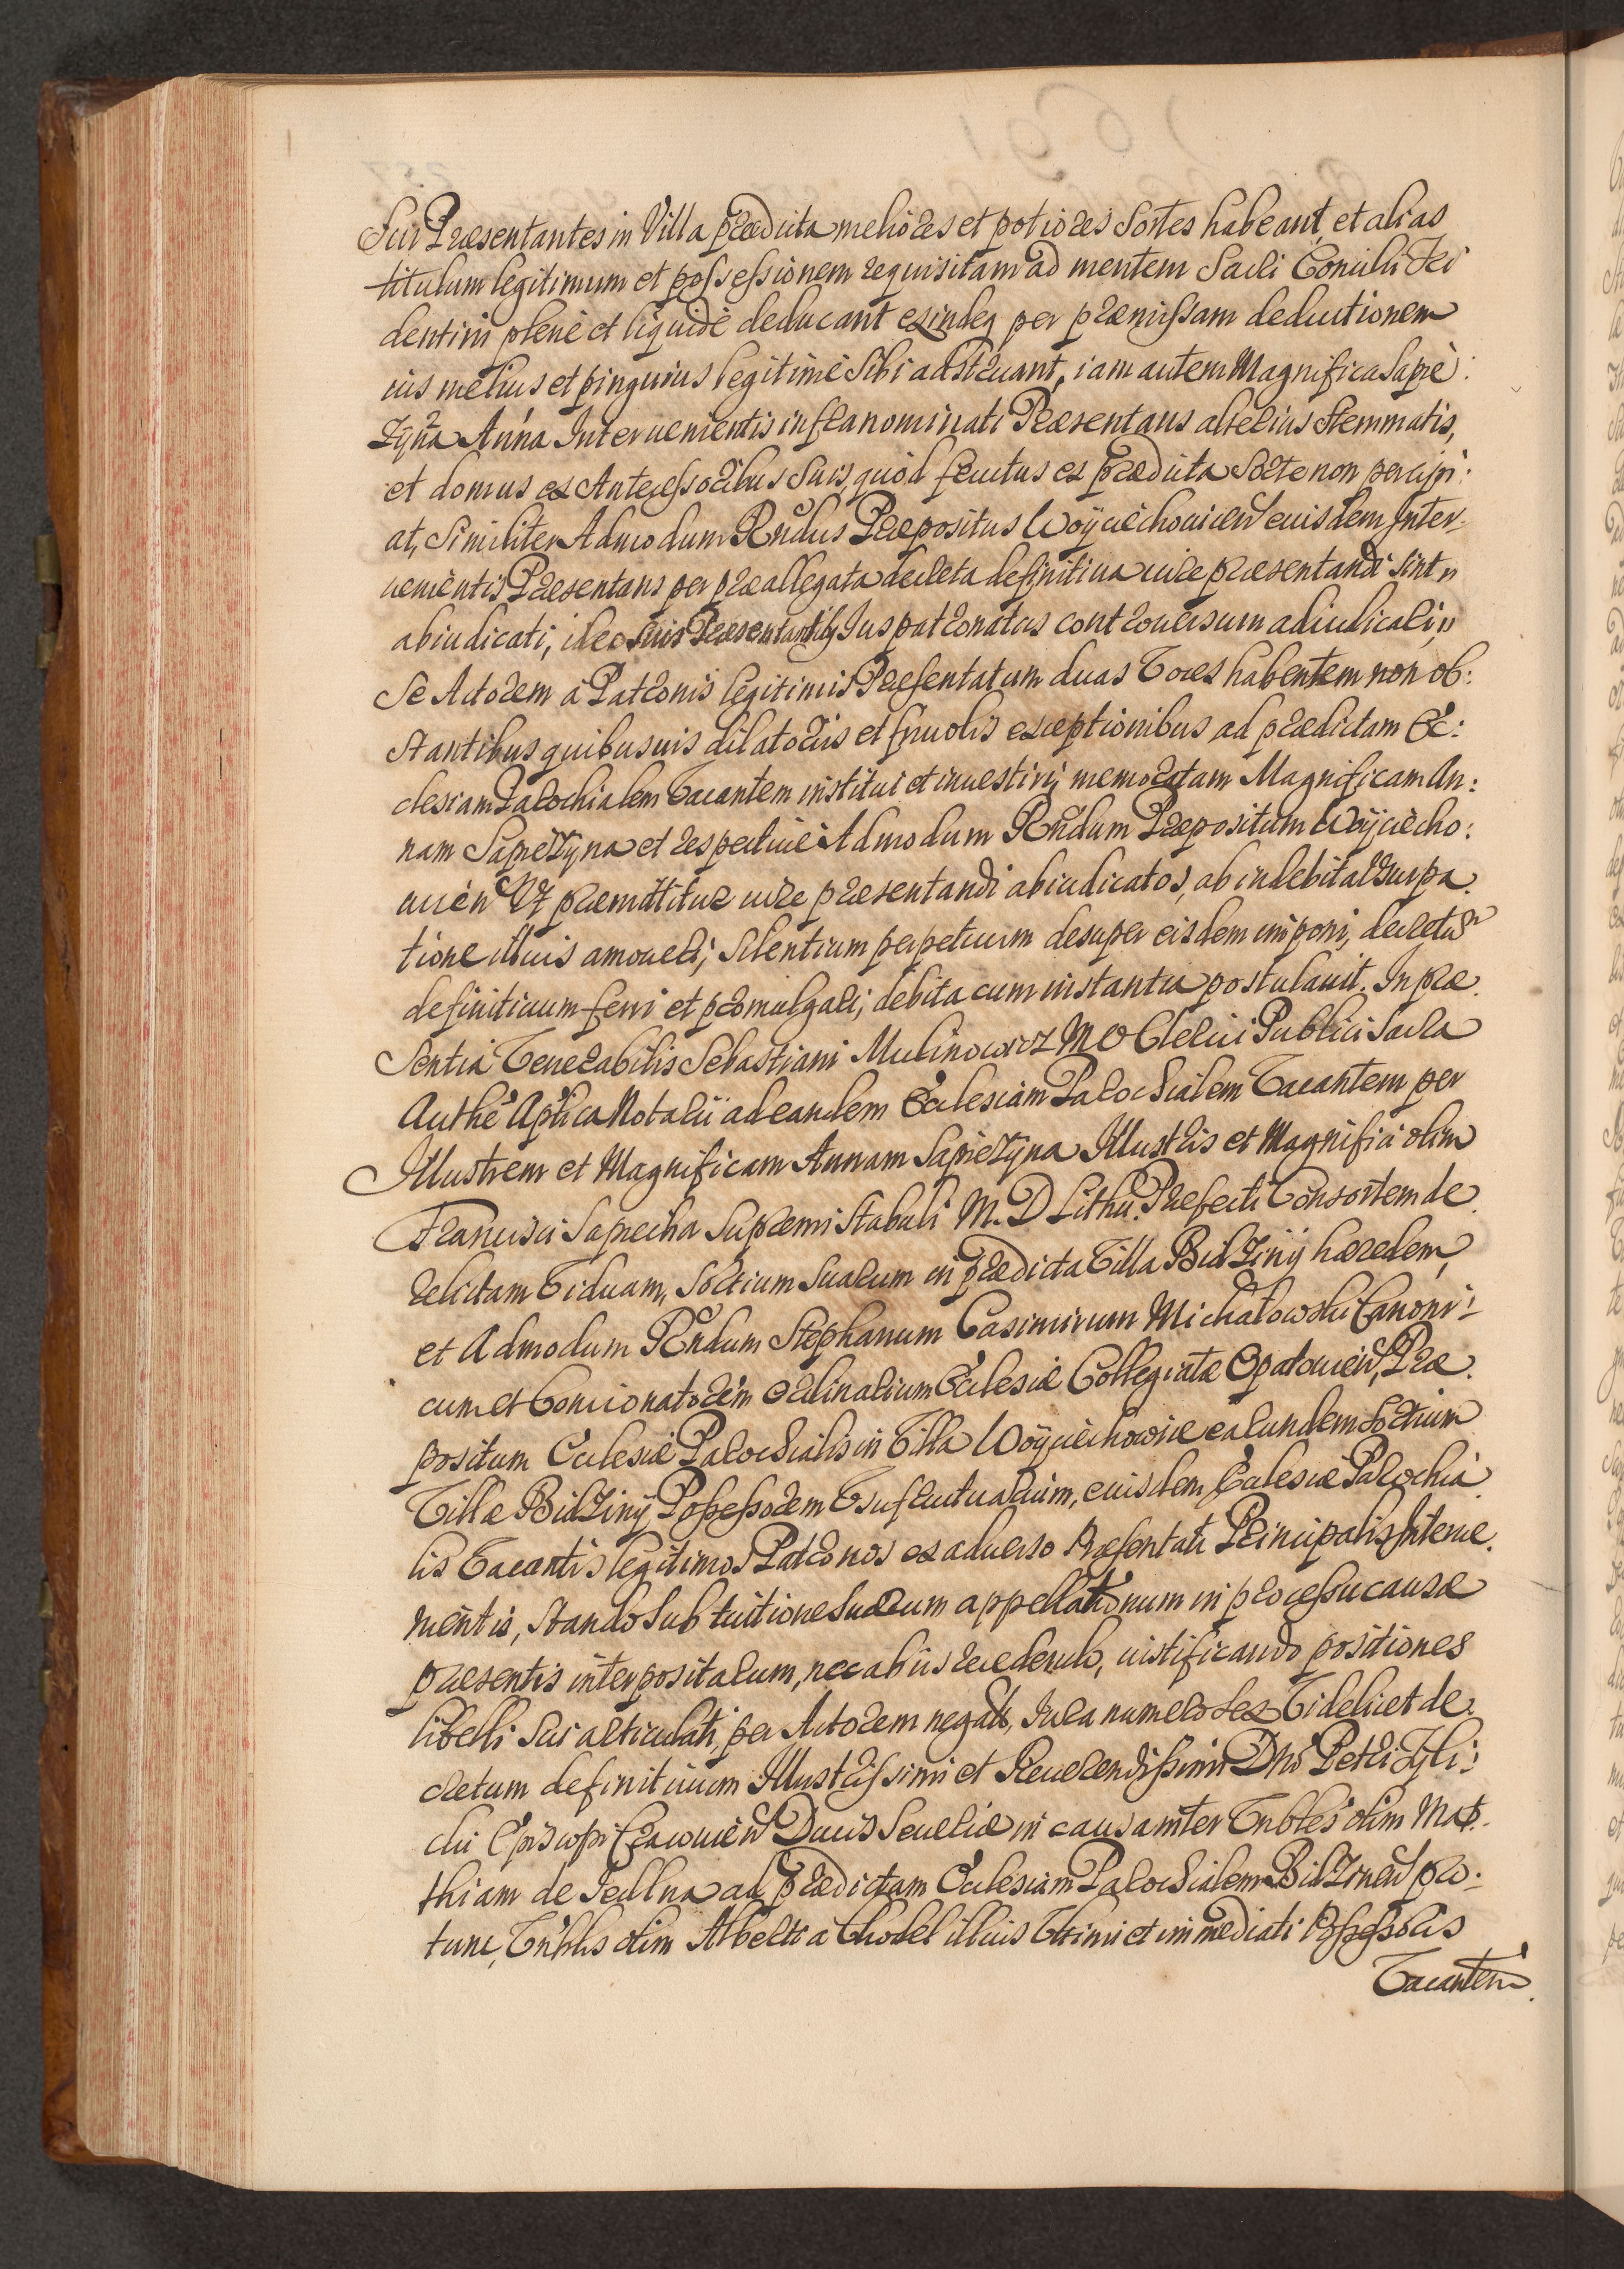 Sui Præsentantes in Villa prædicta meliores et potiores Sortes habeant, et alias
titulum legitimum et possessionem requisitam ad mentem Sacri Concilii Tri
dentini plenè et liquidè deducant exindeq per præmissam deductionem
ius melius et pinguius legitimè Sibi adstruant, iam autem Magnifica Sapie:
zyna Anna Interuenientis infranominati Præsentans alterius Stemmatis,
et domus ex Antecessoribus Suis, quòd fructus ex prædicta Sorte non percipi:
at, Similiter Admodum Rndus Præpositus Woyciechouicen eiusdem Inter
uenientis Præsentans per præallegata decreta definitiua iure præsentandi sint
abiudicati, ideo Suis Præsentantibq Ius patronatus controuersum adiudicari,
Se Actorem à Patronis legitimis Præsentatum duas Voces habentem non ob:
stantibus quibusuis dilatoriis et friuolis exceptionibus ad prædictam Ec:
clesiam Parochialem Vacantem institui et inuestiri, memoratam Magnificam An:
nam Sapiezyna et respectiuè Admodum Rndum Præpositum Woyciecho:
uicen Vt præmittitur iure præsentandi abiudicatos, ab indebita Vsurpa
tione illius amoueri, Silentium perpetuum desuper eisdem imponi, decretum
definitiuum ferri et promulgari, debita cum instantia postulauit. In præ
Sentia Venerabilis Sebastiani Mulinowicz M O Clerici Publici Sacra
Authe Aplica Notarii ad eandem Ecclesiam Parochialem Vacantem per
Illustrem et Magnificam Annam Sapiezyna Illustris et Magnifici olim
Francisci Sapiecha Supremi Stabuli M. D Lithu. Præfecti Consortem de
relictam Viduam, Sortium Suarum in prædicta Villa Bidziny hæredem,
et Admodum Rndum Stephanum Casimirum Michalowski Canoni:
cum et Concionatorem ordinarium Ecclesiæ Collegiatæ Opatouien, Præ
positum Ecclesiæ Parochialis in Villa Woyciechowice earundem Sortium
Villæ Bidziny Possessorem Vsufructuarium, eiusdem Ecclesiæ Parochia
lis Vacantis legitimos Patronos ex aduerso Præsentati Principalis Interue
nientis, Stando Sub tuitione Suarum appellationum in processu causæ
præsentis interpositarum, nec ab iis recedendo, iustificando positiones
libelli Sui articulati, per Actorem negatas, Iura numero Sex Videlicet de
cretum definitiuum Illustrissimi et Reuerendissimi Dni Petri Tyli:
cki Episcopi Cracouien Ducis Seueriæ in causa inter Vnbles olim Mat
thiam de Jedlna ad prædictam Ecclesiam Parochialem Bidzinen pro
tunc, Vnblis olim Alberti a Chodel illius Vltimi et immediati Possessoris
Vacantem